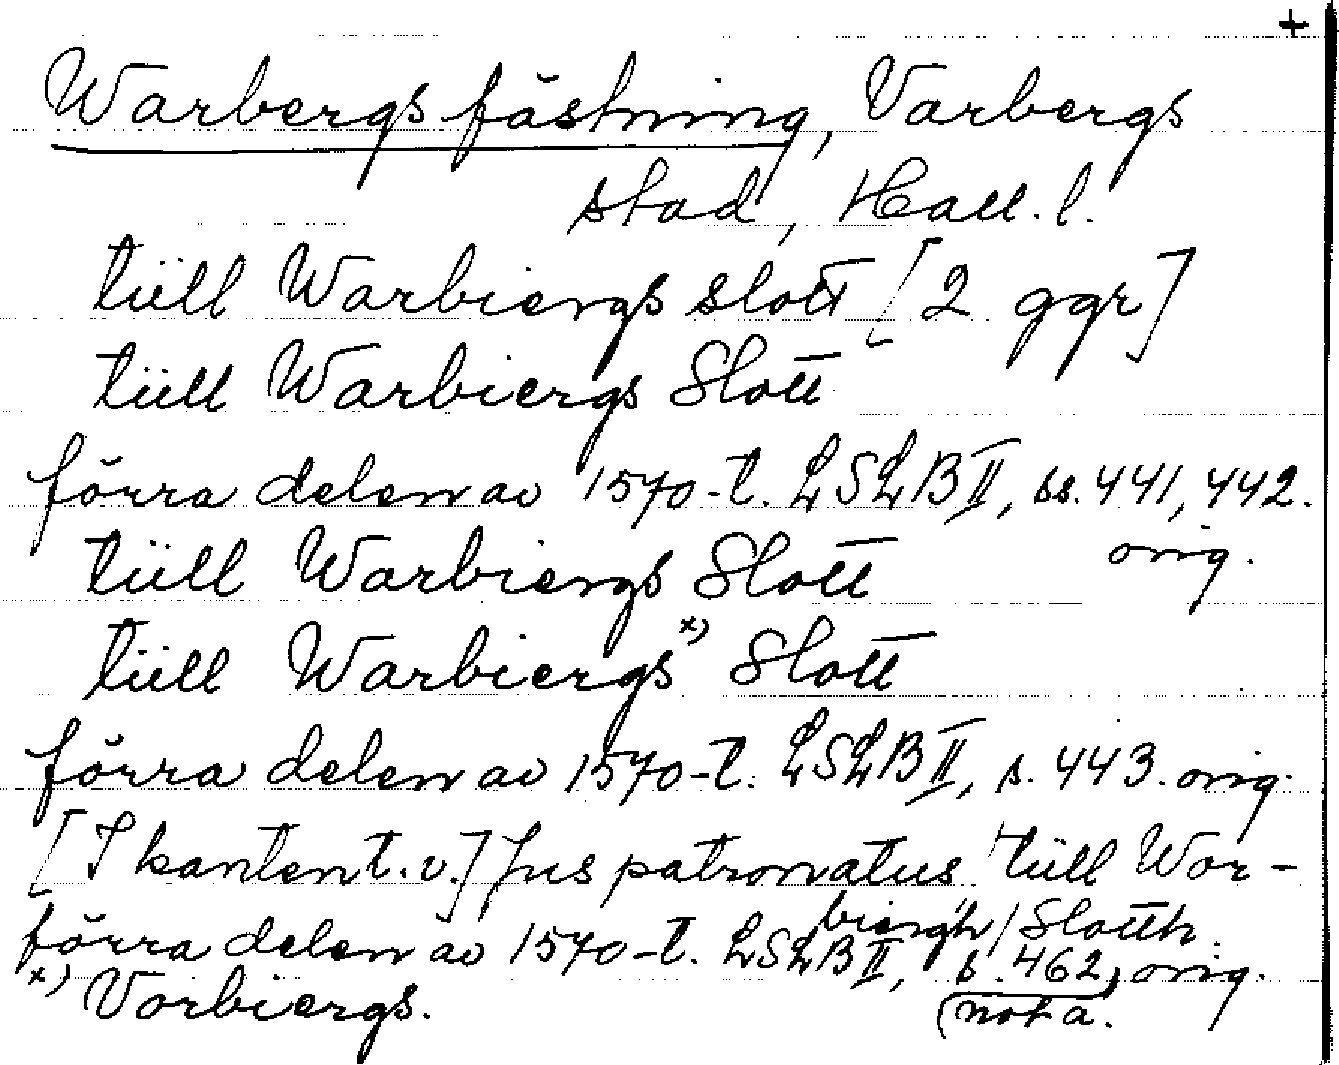 +
Warbergs fästning, Varbergs
stad, Hall. l.
tüll Warbiergs slott [2 ggr]
tüll Warbiergs Slott
förra delen av 1570-t. LSLB II, ss. 441, 442.
orig.
tüll Warbiergs Slott
tüll Warbiergs x) Slott
förra delen av 1570-t. LSLB II, s. 443. orig.
[I kanten t.v.] Jus patronatus tüll War-
biergh / Slotth.
förra delen av 1570-t. LSLB II, s. 462, orig.
x) Vorbiergs. (nota.